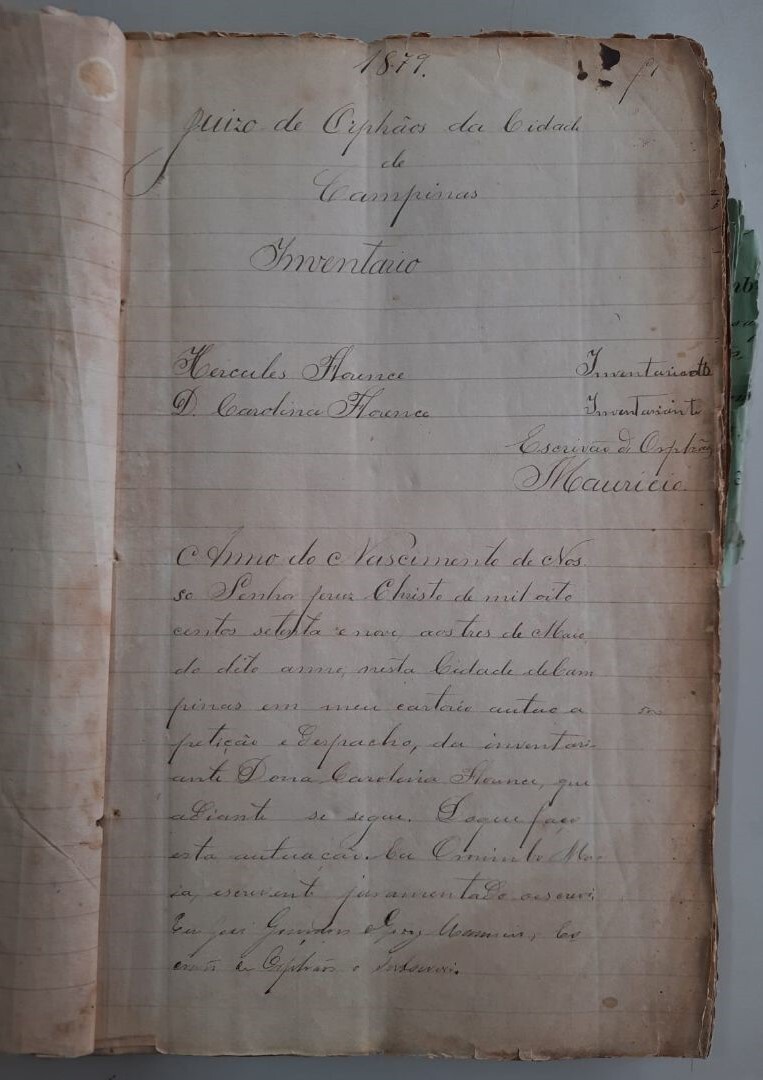 1879.
fl 1
Juizo de Orphãos da Cidade
de
Campinas
Inventario
Hercules Florence Inventariado
D. Carolina Florence Inventariante
Escrivão d' Orphãos
Mauricio
Anno do Nascimento de Nos
so Senhor Jesus Christo de mil oito
centos setenta e nove, aos tres de Maio,
do dito anno, nesta Cidade de Cam
pinas em meu cartorio autuo a
petição e despacho, da inventari-
ante Dona Carolina Florence, que
adiante se segue. Do que faço
esta autuação. Eu Ma-
ia, escrevente juramentado o escrevi
Eu José Es
crivão de Orphãos o subscrevi.